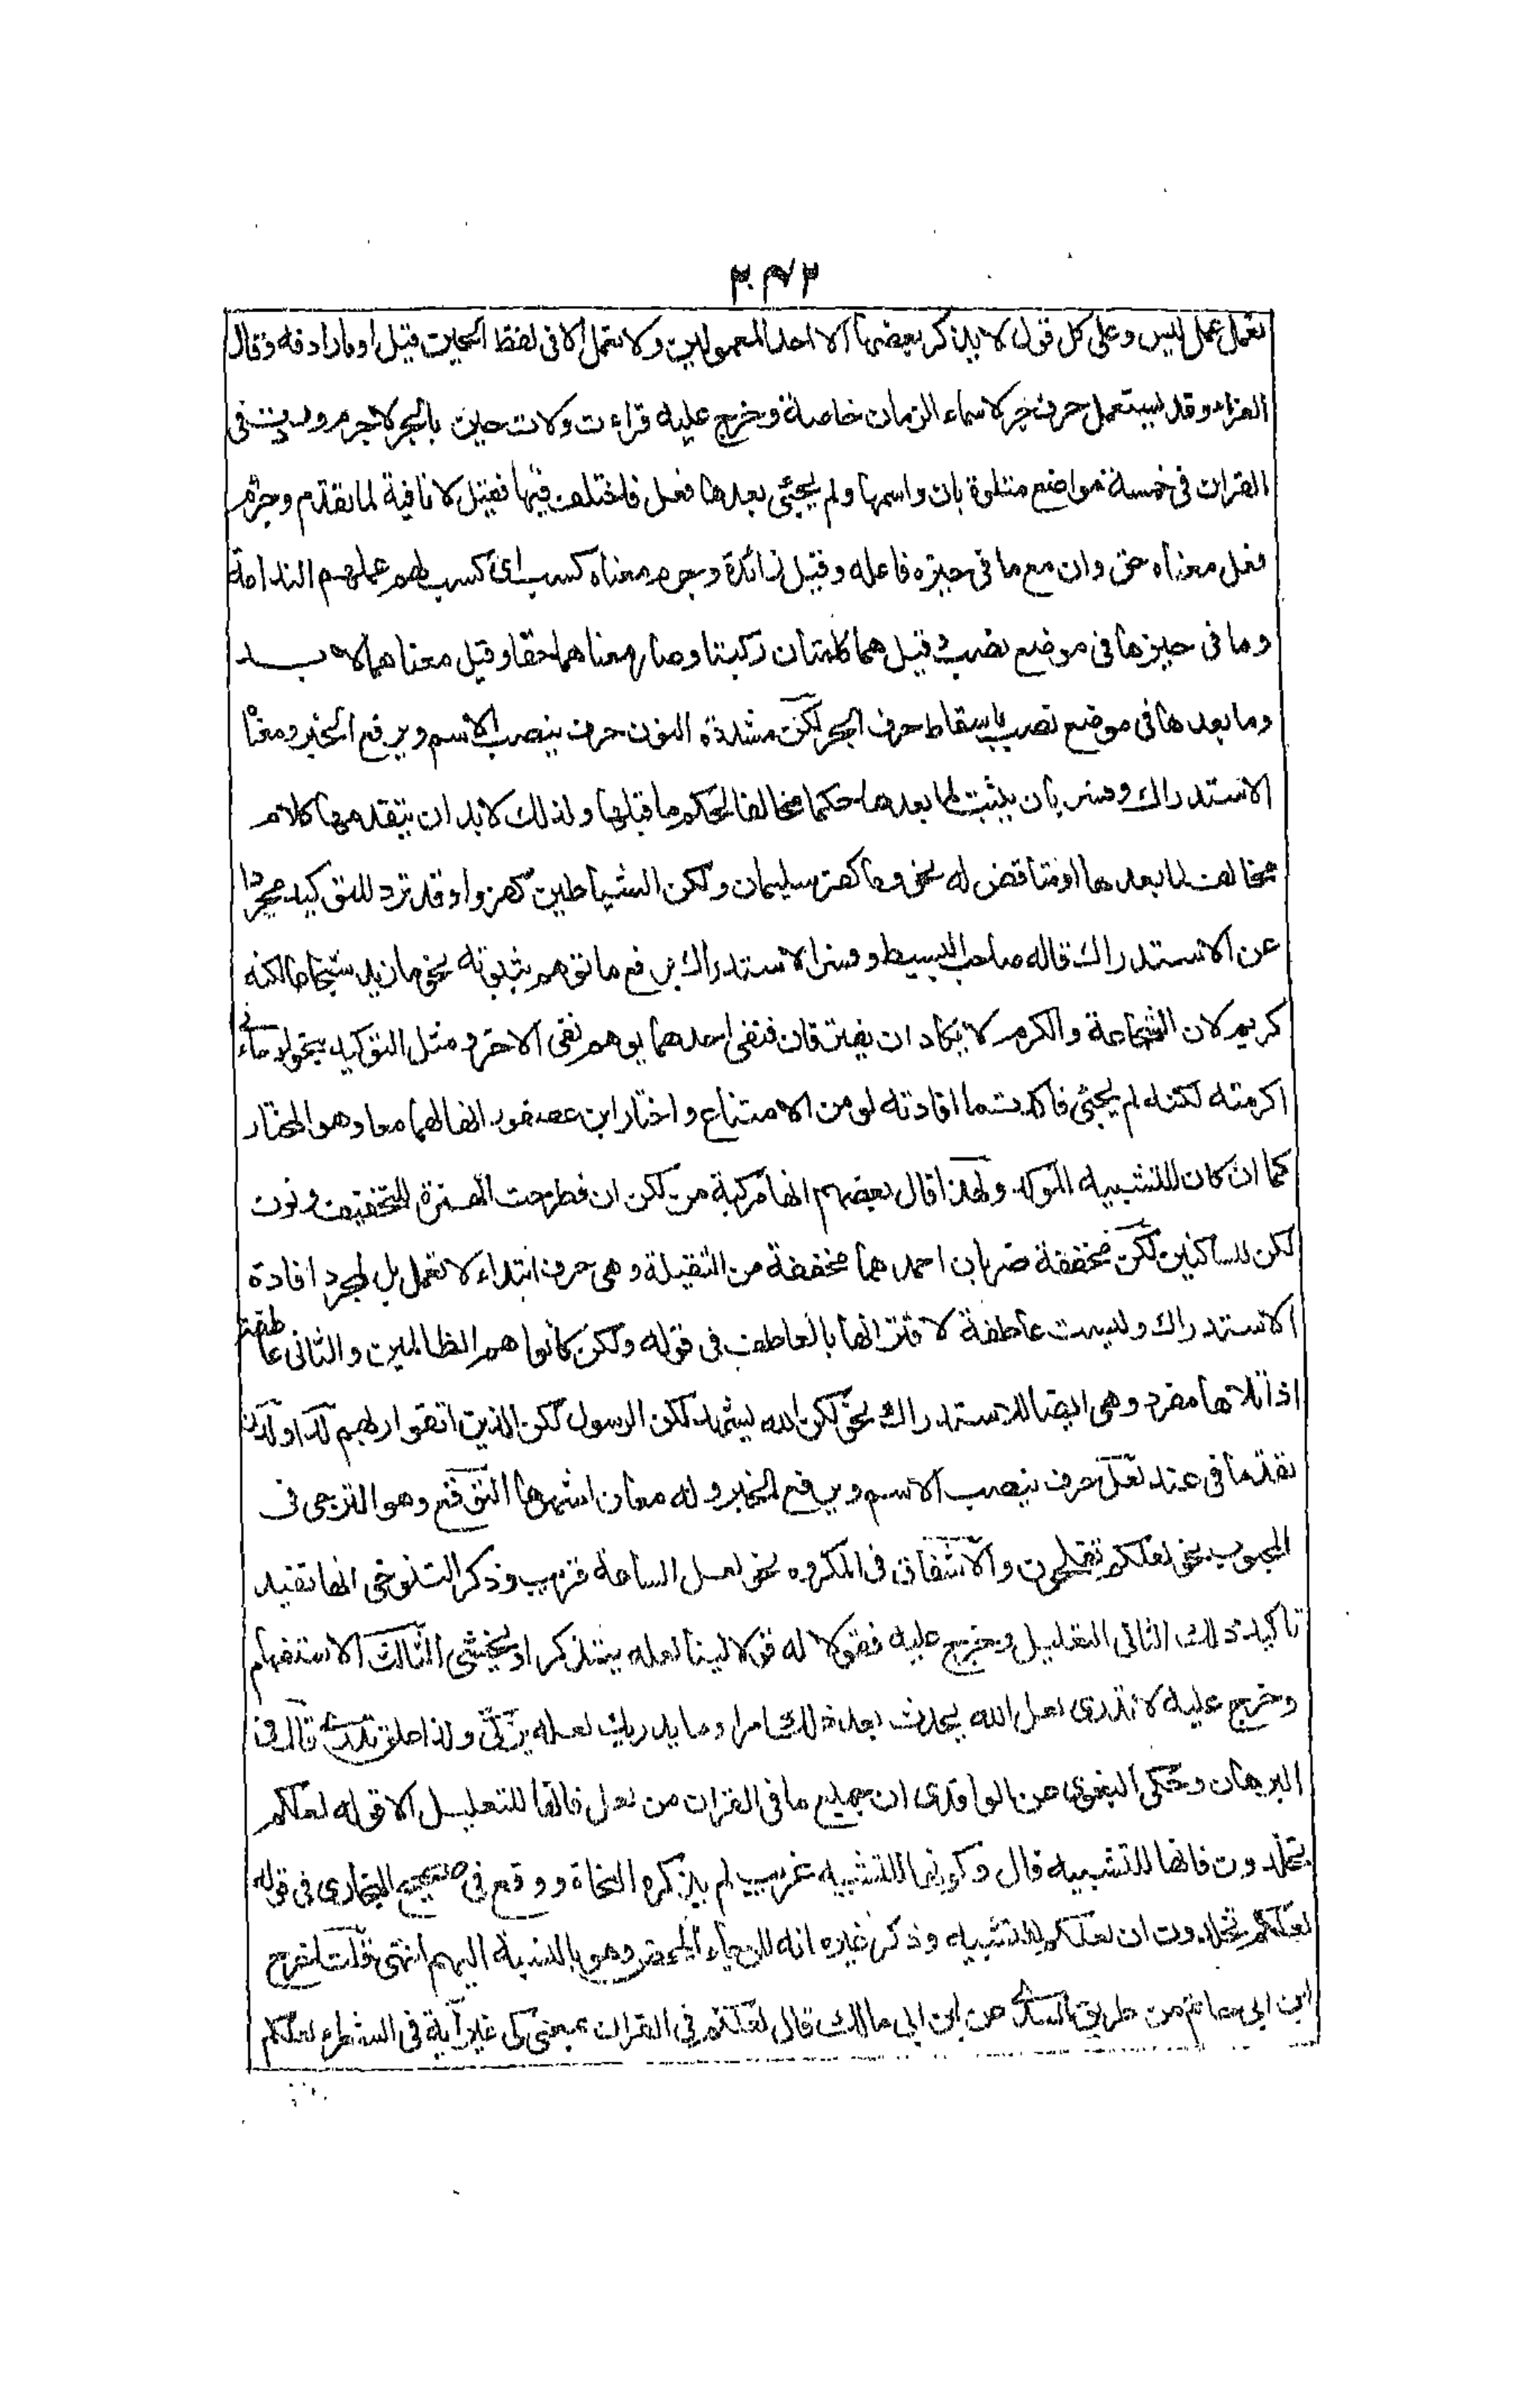 ٢٠٣٢
تعمل عمل ليس وعلى كل قول لا يذكر بعضهما الا احد المعمولين ولا تعمل الا فى لفظ الحين قيل او ما رادفه وقال
الفراء وقد يستعمل حرف جر لاسماء الزمان خاصة وخرج عليه قراءت ولات حين بالجر لا جرم وردت فى
القران فى خمسة مواضع متلوة بان واسمها ولم يجئ بعدها فعل فاختلف فيها فقيل لا نافية لما تقدم وجرم
فعل معناه حق وان مع ما فى حيزه فاعله وقيل زائدة وجرم معناه كسب اى كسب لهم عملهم الندامة
وما فى حيزها فى موضع نصب وقيل هما كلمتان ركبتا وصار معناهما حقا وقيل معناهما لا بــد
وما بعدها فى موضع نصب باسقاط حرف الجر لكن مشددة النون حرف ينصب الاسم ويرفع الخبر ومعناه
الاستدراك وفسر بان يثبت لما بعدها حكما مخالفا لحكم ما قبلها ولذلك لابد ان يتقدمها كلام
مخالف لما بعدها او مناقض له نحو وما كفر سليمان ولكن الشياطين كفروا وقد ترد للتوكيد مجردا
عن الاستدراك قاله صاحب البسيط وفسر الاستدراك برفع ما توهم ثبوته نحو ما زيد شجاعا لكنه
كريم لان الشجاعة والكرم لا يكاد ان يفترقان فنفى احدهما يوهم نفى الاخر ومثل التوكيد بنحو لو جاءنى
اكرمته لكنه لم يجئ فاكدت ما افادته لو من الامتناع واختار ابن عصفور انها لهما معا وهو المختار
كما ان كان للتشبيه الموكد ولهذا قال بعضهم انها مركبة من لكن ان فطرحت الهمزة للتخفيف ونون
لكن للساكنين لكن مخففة ضربان احدهما مخففة من الثقيلة وهى حرف ابتداء لا تعمل بل لمجرد افادة
الاستدراك وليست عاطفة لاقترانها بالعاطف فى قوله ولكن كانوا هم الظالمين والثانى عاطفة
اذا تلاها مفرد وهى ايضا للاستدراك نحو لكن الله يشهد لكن الرسول لكن الذين اتقوا ربهم لدا ولدن
تقدما فى عند لعل حرف ينصب الاسم ويرفع الخبر وله معان اشهرها التوقع وهو الترجى فى
المحبوب نحو لعلكم تفلحون والاشفاق فى المكروه نحو لعل الساعة قريب وذكر التنوخى انها تفيد
تاكيد ذلك الثانى التعليل وخرج عليه فقولا له قولا لينا لعله يتذكر او يخشى الثالث الاستفهام
وخرج عليه لا تدرى لعل الله يحدث بعد ذلك امرا وما يدريك لعله يزكى ولذا علق تدرى قال فى
البرهان وحكى البغوى عن الواقدى ان جميع ما فى القران من لعل فانها للتعليل الا قوله لعلكم
تخلدون فانها للتشبيه قال وكونها للتشبيه غريب لم يذكره النحاة ووقع فى صحيح البخارى فى قوله
لعلكم تخلدون ان لعلكم للتشبيه وذكر غيره انه للرجاء المحض وهو بالنسبة اليهم انتهى قلت اخرج
ابن ابى حاتم من طريق السدى عن ابن ابى مالك قال لعلكم فى القران بمعنى كى غير آية فى الشعراء لعلكم